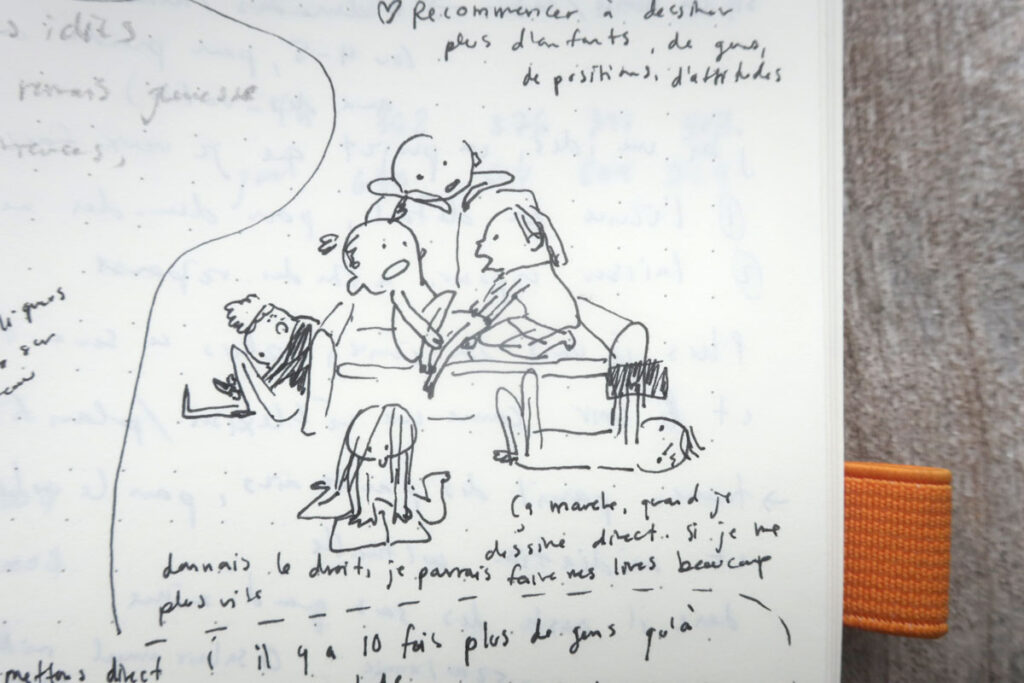 ♡ Recommencer à dessiner
plus d'enfants, de gens,
de positions, d'attitudes
s idées
romais jeunesse
Ça marche, quand je
dessine direct. Si je me
donnais le droit, je pourrais faire mes livres beaucoup
plus vite
il y a 10 fois plus de gens qu'à
mettons direct